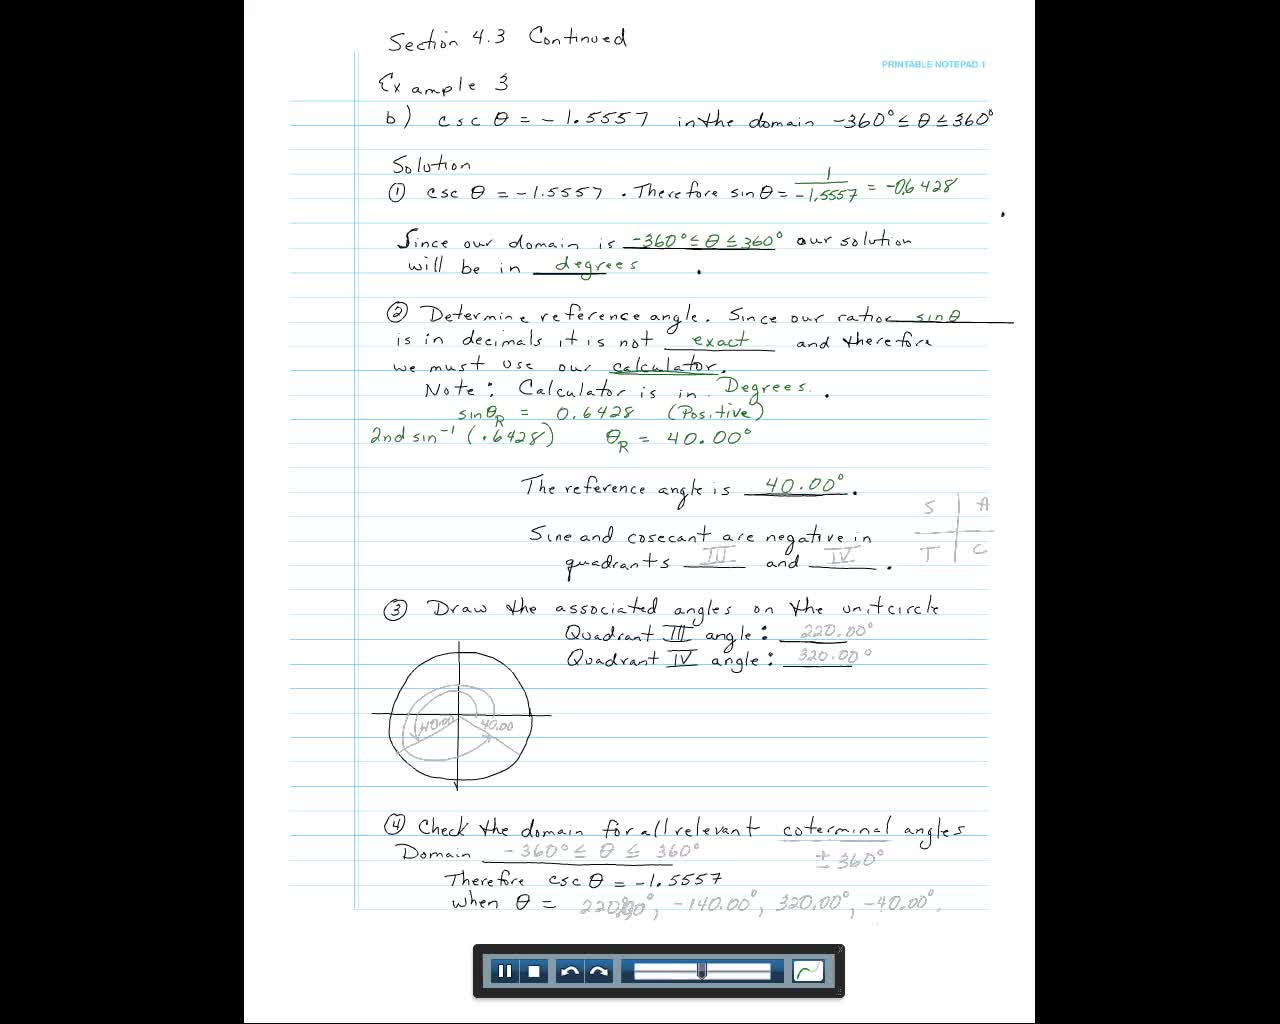 Section 4.3 Continued
PRINTABLE NOTEPAD 1
Example 3
b) csc θ = -1.5557 in the domain -360° ≤ θ ≤ 360°
Solution
① csc θ = -1.5557 . Therefore sin θ = 1/-1.5557 = -0.6428
Since our domain is -360° ≤ θ ≤ 360° our solution
will be in degrees .
② Determine reference angle. Since our ratio sin θ
is in decimals it is not exact and therefore
we must use our calculator.
Note: Calculator is in Degrees. .
sin θR = 0.6428 (Positive)
2nd sin⁻¹ (.6428) θR = 40.00°
The reference angle is 40.00° .
S A
Sine and cosecant are negative in
T C
quadrants III and IV .
③ Draw the associated angles on the unit circle
Quadrant III angle: 220.00°
Quadrant IV angle: 320.00°
40.00 40.00
④ Check the domain for all relevant coterminal angles
Domain -360° ≤ θ ≤ 360° ± 360°
Therefore csc θ = -1.5557
when θ = 220.00°, -140.00°, 320.00°, -40.00°.